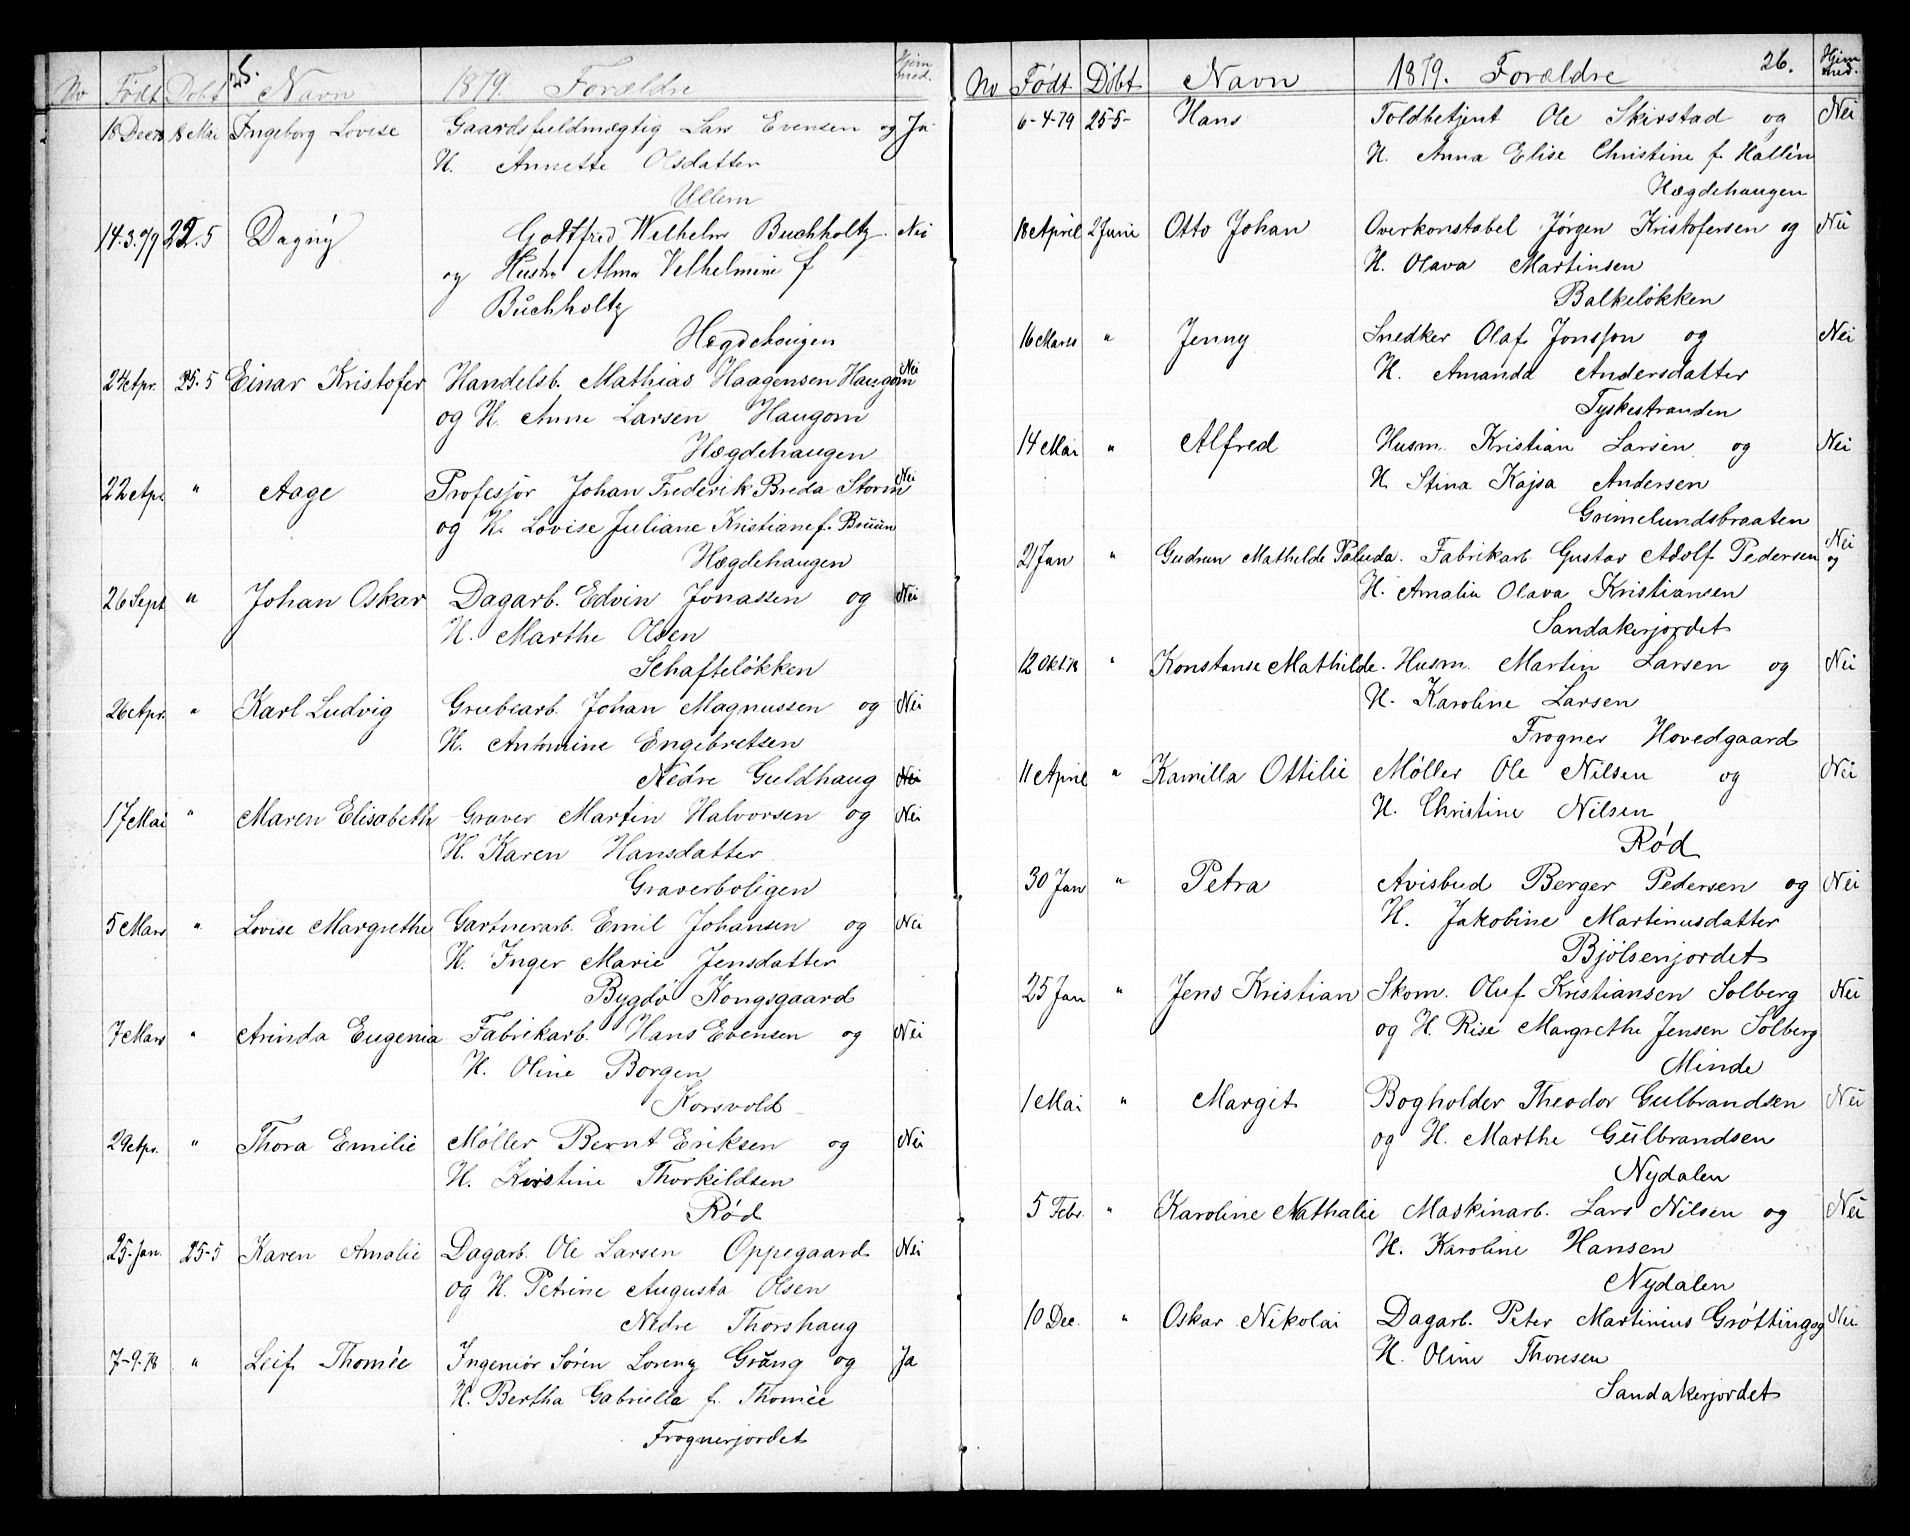 25.
No Født Døbt Navn 1879. Forældre Hjem med.
18 Decr 18 Mai Ingeborg Lovise Gaardsfuldmægtig Lars Evensen og Ja
H. Annette Olsdatter
Ullern
14.3.79 22.5 Dagny Gottfred Wilhelm Buchholtz Nei
og Hustru Alma Vilhelmine f
Buchholtz
Hægdehaugen
24 Apr. 25.5 Einar Kristofer Handelsb. Mathias Haagensen Haugom Nei
og H. Anne Larsen Haugom
Hægdehaugen
22 Apr. " Aage Professor Johan Frederik Breda Storm Nei
og H. Lovise Juliane Kristiane f. Bruun
Hægdehaugen
26 Sept " Johan Oskar Dagarb. Edvin Jonassen og Nei
H. Marthe Olsen
Schafteløkken
26 Apr. " Karl Ludvig Grubearb. Johan Magnussen og Nei
H. Antonine Engebretsen
Nedre Guldhaug Nei
17 Mai " Maren Elisabeth Graver Martin Halvorsen og Nei
H. Karen Hansdatter
Graverboligen
5 Mars " Lovise Margrethe Gartnerarb. Emil Johansen og Nei
H. Inger Marie Jensdatter
Bygdø Kongsgaard
7 Mars " Arinda Eugenia Fabrikarb. Hans Evensen og Nei
H. Oline Borgen
Korsvold
29 Apr. " Thora Emilie Møller Bernt Eriksen og Nei
H. Kirstine Thorkildsen
Rød
25. Jan. 25-5 Karen Amalie Dagarb. Ole Larsen Oppegaard Nei
og H. Petrine Augusta Olsen
Nedre Thorshaug
7-9.78 " Leif Thomée Ingeniør Sören Lorenz Grång og Ja
H. Bertha Gabrielle f. Thomée
Frognerjordet
No Født. Døbt Navn 1879. Forældre 26. Hjem med.
6-4-79 25-5- Hans Toldbetjent Ole Skirstad og Nei
H. Anna Elise Christine f. Hallén
Hægdehaugen
18 April 2 Juni Otto Johan Overkonstabel Jørgen Kristofersen og Nei
H. Olava Martinsen
Balkeløkken
16 Mars " Jenny Snedker Olaf Jonsson og Nei
H. Amanda Andersdatter
Tyskestranden
14 Mai " Alfred Husm. Kristian Larsen og Nei
H. Stina Kajsa Andersen
Grimelundsbraaten
21 Jan " Gudrun Mathilde Paluda. Fabrikarb. Gustav Adolf Pedersen og Nei
H. Amalie Olava Kristiansen
Sandakerjordet
12 Okt 78 " Konstanse Mathilde. Husm. Martin Larsen og Nei
H. Karoline Larsen
Frogner Hovedgaard
11 April " Kamilla Ottilie Møller Ole Nilsen og Nei
H. Christine Nilsen
Rød
30 Jan " Petra Avisbud Berger Pedersen og Nei
H. Jakobine Martinusdatter
Bjølsenjordet
25 Jan " Jens Kristian Skom. Oluf Kristiansen Solberg Nei
og H. Rise Margrethe Jensen Solberg
Minde
1 Mai " Margit Bogholder Theodor Gulbrandsen Nei
og H. Marthe Gulbrandsen
Nydalen
5 Febr. " Karoline Nathalie Maskinarb. Lars Nilsen og Nei
H. Karoline Hansen
Nydalen
10 Dec. " Oskar Nikolai Dagarb. Peter Martinius Grøtting og Nei
H. Oline Thoresen
Sandakerjordet